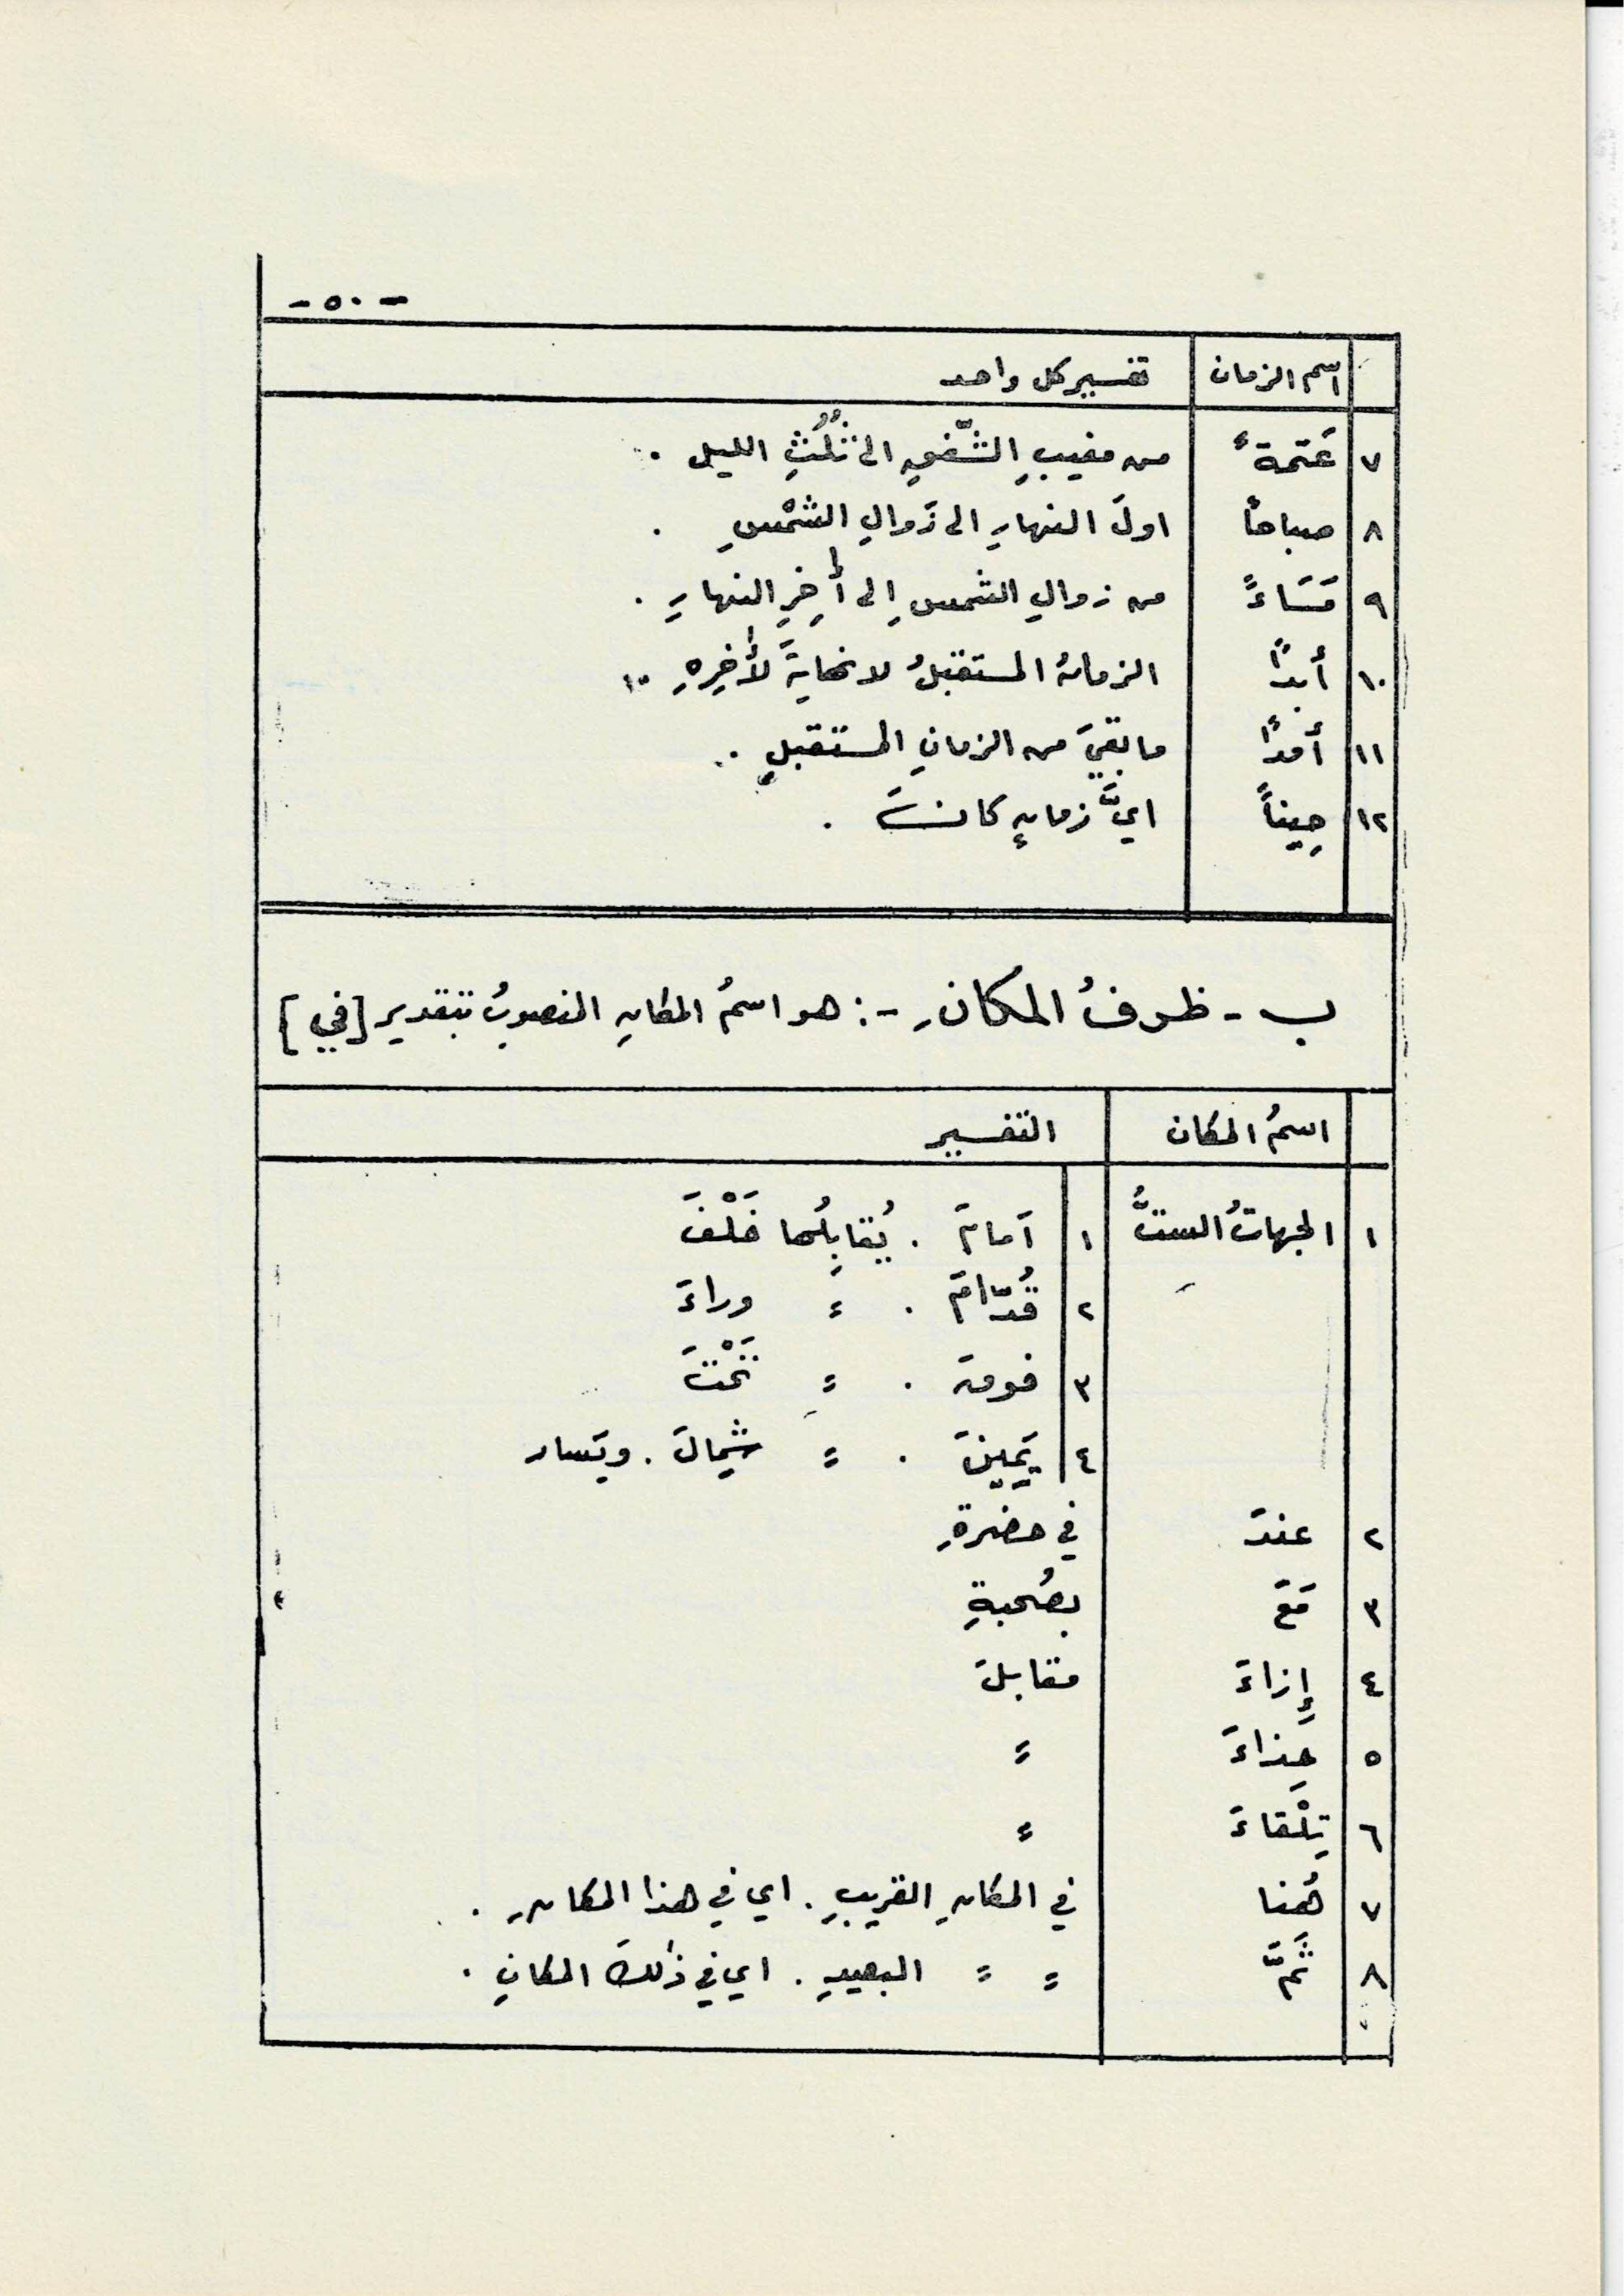 - ٥٠ -
اسم الزمان تفسير كل واحد
٧ عَتمةً من مغيبِ الشَّفقِ الى ثُلُثِ الليل .
٨ صباحاً اولَ النهارِ الى زَوالِ الشمْسِ .
٩ مَسَاءً من زوالِ الشمسِ إِلى أٰخِرِ النهارِ .
١٠ أبداً الزمانُ المستقبلُ لا نهايةَ لأٰخِرِهِ ..
١١ أمداً ما بقيَ من الزمانِ المستقبلِ .
١٢ حِيناً ايَّ زمانٍ كانَ .
ب - ظروفُ المكانِ -: هو اسمُ المكانِ المنصوبُ بتقدير [في]
اسمُ المكان التفسير
١ الجهاتُ الستُّ ١ اَمامَ . يُقابِلُها خَلْفَ
٢ قُدّامَ . = وراءَ
٣ فوقَ . = تَحْتَ
٤ يَمِينَ . = شِمالَ . ويَسار
٢ عندَ في حضرةِ
٣ مَعَ بصُحبةِ
٤ إِزاءَ مقابلَ
٥ حِذاءَ =
٦ تِلْقاءَ =
٧ هُنا في المكانِ القريبِ . اي في هذا المكانِ .
٨ ثَمَّ = = البعيدِ . اي في ذٰلكَ المكانِ .